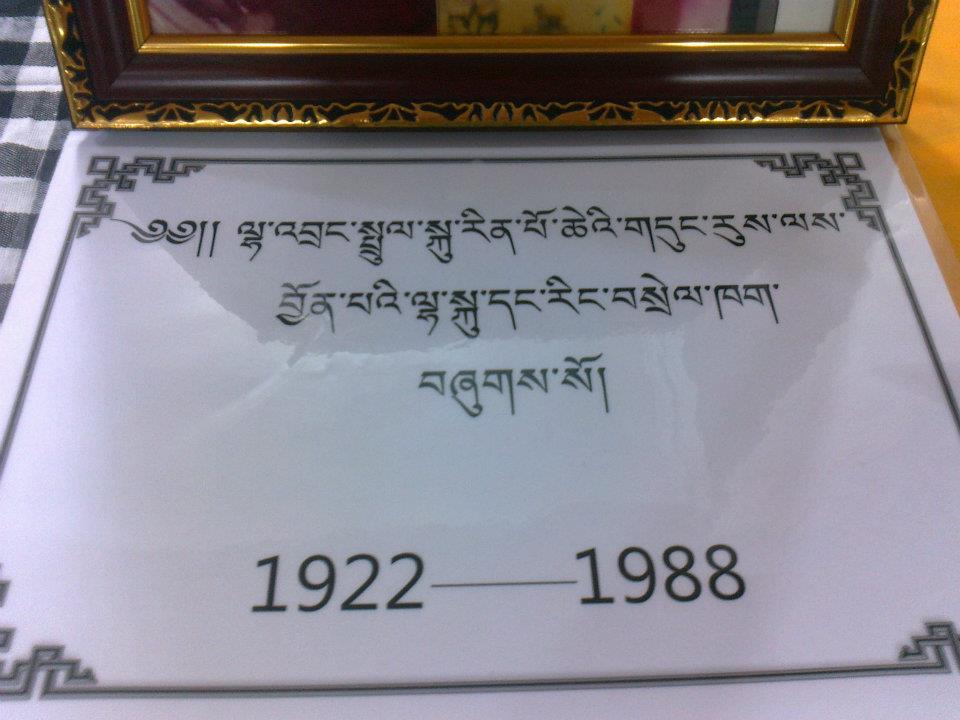 ༄༅།། ལྷ་འབྲང་སྤྲུལ་སྐུ་རིན་པོ་ཆེའི་གདུང་རུས་ལས་
བྱོན་པའི་ལྷ་སྐུ་དང་རིང་བསྲེལ་ཁག་
བཞུགས་སོ།
1922——1988